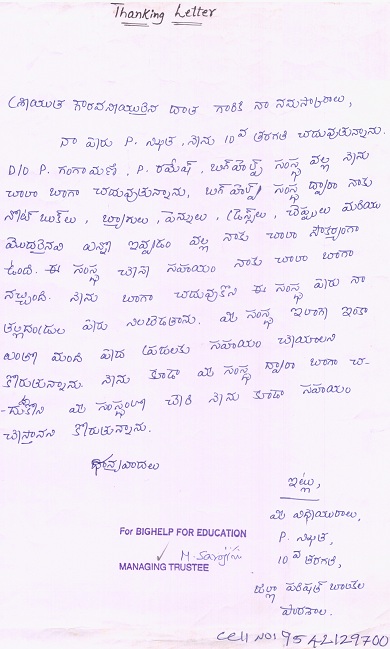 Thanking Letter
శ్రీయుత గౌరవనీయులైన దాత గారికి నా నమస్కారాలు,
నా పేరు P. నిఖిత, నేను 10 వ తరగతి చదువుతున్నాను.
D/O P. గంగామణి, P. రమేష్, బిగ్‌హెల్ప్ సంస్థ వల్ల నేను
చాలా బాగా చదువుతున్నాను, బిగ్‌హెల్ప్ సంస్థ ద్వారా నాకు
నోట్‌బుక్‌లు, బ్యాగులు, పెన్నులు, డ్రెస్సులు, చెప్పులు మరియు
మొదలైనవి అన్నీ ఇవ్వడం వల్ల నాకు చాలా సౌకర్యంగా
ఉంది. ఈ సంస్థ చేసే సహాయం నాకు చాలా బాగా
నచ్చింది. నేను బాగా చదువుకొని ఈ సంస్థ పేరు నా
తల్లిదండ్రుల పేరు నిలబెడతాను. మీ సంస్థ ఇలాగే ఇంకా
ఎంతో మంది పేద పిల్లలకు సహాయం చేయాలని
కోరుతున్నాను. నేను కూడా మీ సంస్థ ద్వారా బాగా చ-
-దువుకొని మీ సంస్థలో చేరి నేను కూడా సహాయం
చేస్తానని కోరుతున్నాను.
ధన్యవాదలు
ఇట్లు,
మీ విధేయురాలు,
P. నిఖిత,
10 వ తరగతి,
జిల్లా పరిషత్ బాలికల
పాఠశాల.
For BIGHELP FOR EDUCATION
MANAGING TRUSTEE
Cell NO: 9542129700